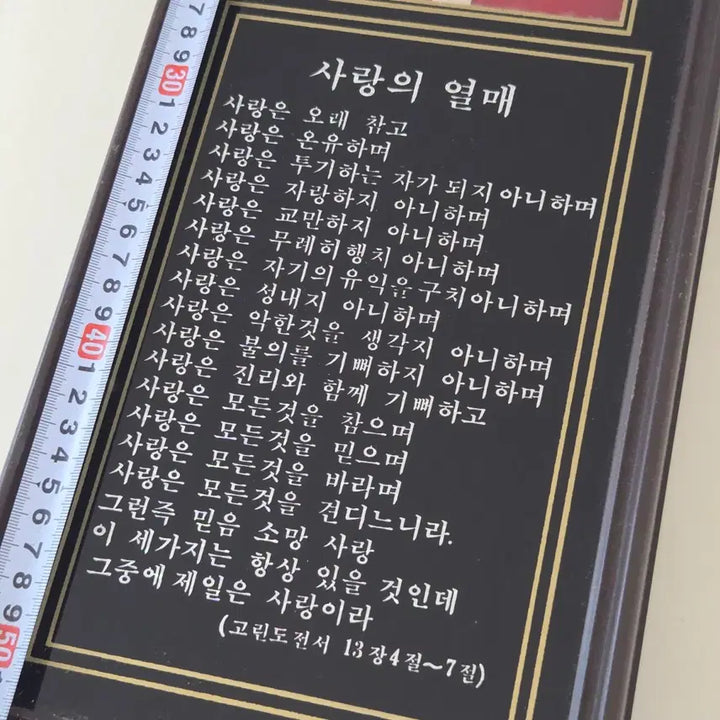 7
8
9
30
1
2
3
4
5
6
7
8
9
40
1
2
3
4
5
6
7
8
9
50
사랑의 열매
사랑은 오래 참고
사랑은 온유하며
사랑은 투기하는 자가 되지 아니하며
사랑은 자랑하지 아니하며
사랑은 교만하지 아니하며
사랑은 무례허행치 아니하며
사랑은 자기의 유익을 구치아니하며
사랑은 성내지 아니하며
사랑은 악한것을 생각지 아니하며
사랑은 불의를 기뻐하지 아니하며
사랑은 진리와 함께 기뻐하고
사랑은 모든것을 참으며
사랑은 모든것을 믿으며
사랑은 모든것을 바라며
사랑은 모든것을 견디느니라.
그런즉 믿음 소망 사랑
이 세가지는 항상 있을 것인데
그중에 제일은 사랑이라
(고린도전서 13장4절~7절)